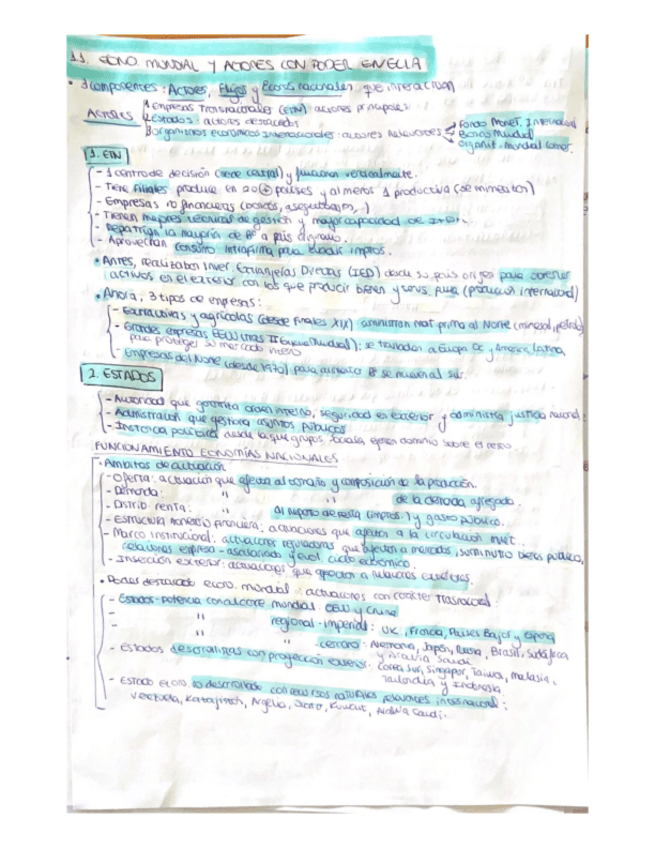 1.1. ECONO. MUNDIAL Y ACTORES CON PODER EN ELLA
• 3 componentes: Actores, Flujos y Econ. nacionales que interactúan
ACTORES
1 Empresas Transnacionales (ETN) actores principales
2 Estados: actores destacados
3 Organismos económicos Internacionales: actores relevantes
Fondo Monet. Internacional
Banco Mundial
Organiz. Mundial Comer.
1. ETN
- 1 centro de decisión (sede central) y funcionan verticalmente.
- Tiene filiales produce en 20 países y al menos 1 productiva (se mimeoton)
- Empresas no financieras (bancos, aseguradoras,..)
- Tienen mejores técnicas de gestión y mayor capacidad de I+D.
- Repatrían la mayoría de Bº a país originario.
- Aprovechan consumo intrafirma para eludir imptos.
• Antes, realizaban Inver. Extranjeras Directas (IED) desde su país origen para obtener
activos en el exterior con los que producir bienes y servs. fuera (producción internacional)
• Ahora, 3 tipos de empresas:
- Extractivas y agrícolas (desde finales XIX) suministran mat. prima al Norte (mineral, petróleo)
- Grandes empresas EEUU (tras II Guerra Mundial): se trasladan a Europa Oc y América Latina,
para proteger su mercado interno
- Empresas del Norte (desde 1970) para aumentar Bº se mueven al sur.
2. ESTADOS
- Autoridad que garantiza orden interno, seguridad en exterior y administra justicia nacional.
- Administración que gestiona asuntos públicos
- Instancia política desde la que grupos sociales ejercen dominio sobre el resto
FUNCIONAMIENTO ECONOMÍAS NACIONALES
• Ámbitos de actuación
- Oferta: actuación que afecta al tamaño y composición de la producción.
- Demanda: " " de la demanda agregada.
- Distrib renta: " al reparto de renta (imptos.) y gasto público.
- Estructura monetario financiera: actuaciones que afectan a la circulación mnet.
- Marco institucional: actuaciones reguladoras que afectan a mercados, suministro bienes públicos,
relaciones empresa - asalariado y evol. ciclo económico.
- Inserción exterior: actuaciones que afectan a relaciones exteriores.
• Poder destacado econo. mundial: actuaciones con carácter Trasnacional:
- Estados-potencia con alcance mundial: EEUU y China
- " " regional - imperial: UK, Francia, Países Bajos y España
- " " - cercano: Alemania, Japón, Rusia, Brasil, Sudáfrica
y Arabia Saudí.
- Estados desarrollistas con proyección exterior: Corea Sur, Singapur, Taiwa, Malasia,
Tailandia y Indonesia
- Estado econo. no desarrollado con recursos naturales relevantes internacional:
Venezuela, Kazajistán, Argelia, Kuwait, Arabia Saudí.